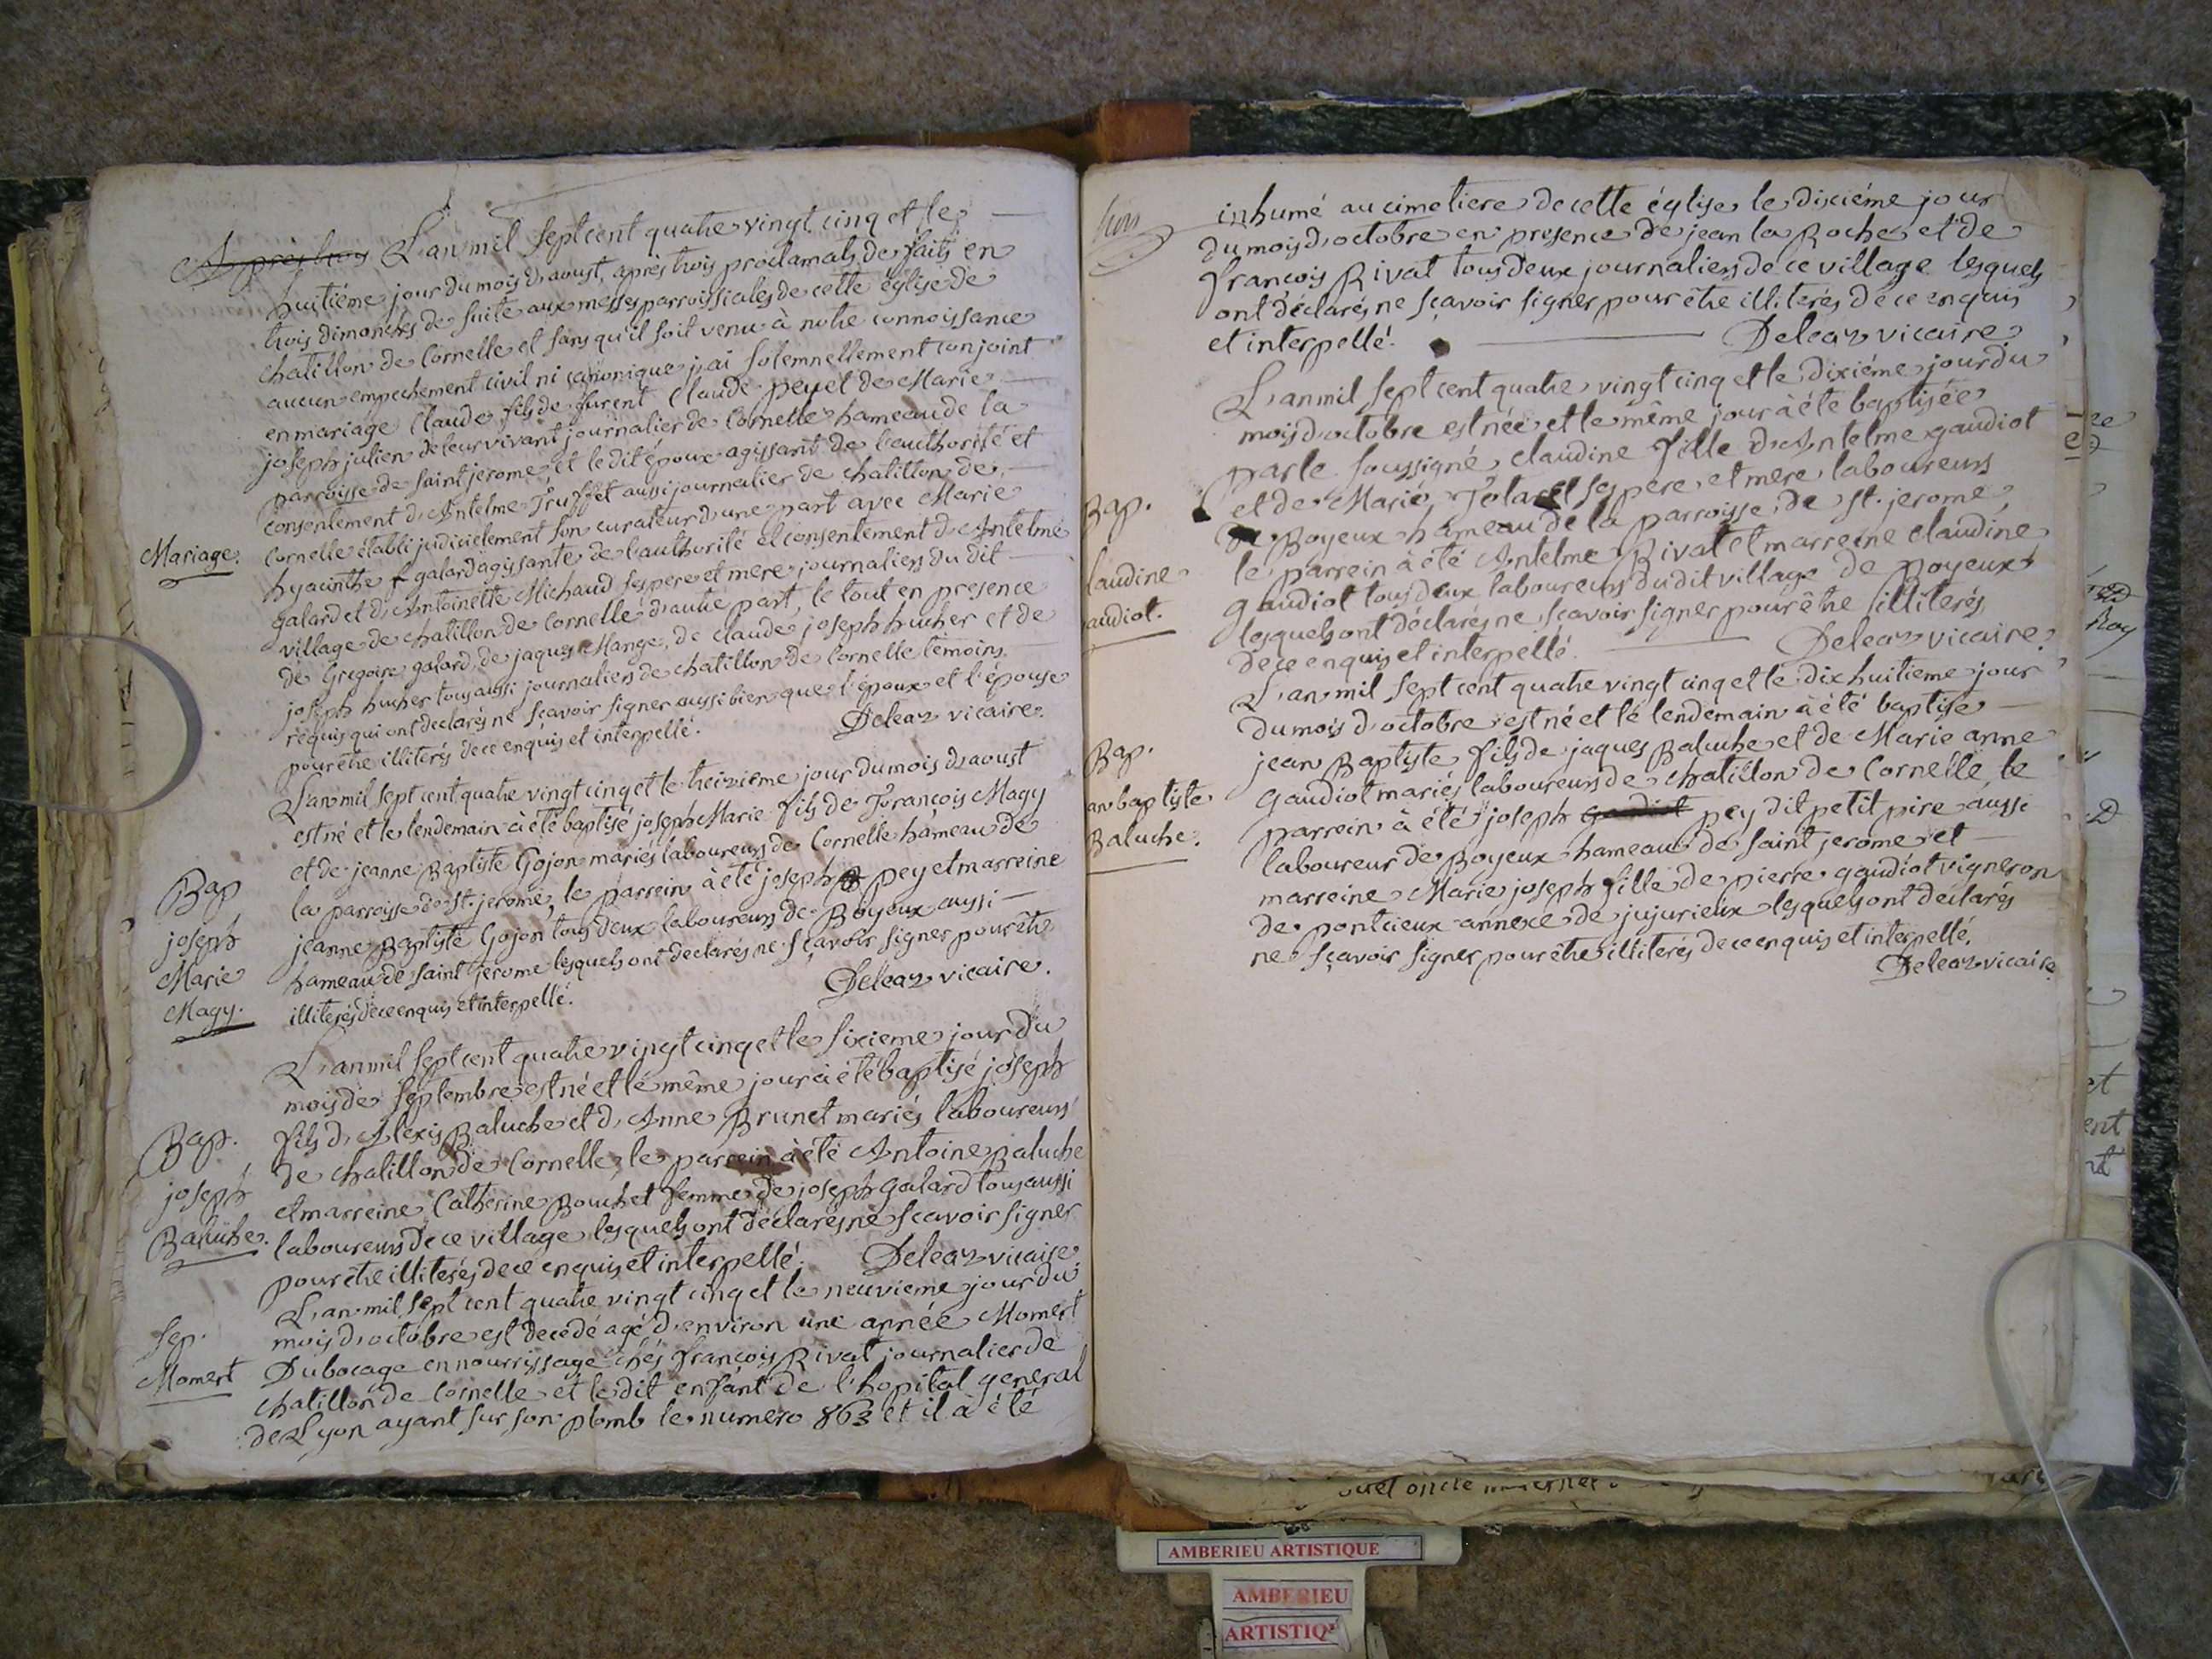 Après trois L'an mil sept cent quatre vingt cinq et le
huitiéme jour du mois d'aoust, après trois proclamats de faits en
trois dimanches de suite aux messes parroissiales de cette église de
chatillon de Cornelle et sans qu'il soit venu à notre connoissance
aucun empechement civil ni canonique j'ai solemnellement conjoint
en mariage Claude fils de furent Claude pey et de Marie
joseph julien de leur vivant journalier de Cornelle hameau de la
parroisse de saint jerome, et le dit époux agissant de l'authorité et
consentement d'Antelme Truffet aussi journalier de chatillon de
Mariage.
Cornelle établi judicielement son curateur d'une part avec Marie
hyacinthe galard agissante de l'authorité et consentement d'Antelme
galard et d'Antoinette Michaud ses pere et mere journaliers du dit
village de chatillon de Cornelle d'autre part, le tout en presence
de Gregoire galard, de jaques Mange, de claude joseph hucher et de
joseph hucher tous aussi journaliers de chatillon de Cornelle temoins
requis qui ont declarés ne sçavoir signer aussi bien que l'époux et l'épouse
pour être illiterés de ce enquis et interpellé.
Deleaz vicaire.
L'an mil sept cent quatre vingt cinq et le treizieme jour du mois d'aoust
est né et le lendemain à été baptisé joseph Marie fils de François Magy
et de jeanne Baptiste Gojon mariés laboureurs de Cornelle hameau de
Bap
joseph
Marie
Magy.
la parroisse de st. jerome, le parrein à été joseph pey et marreine
jeanne Baptiste Gojon tous deux laboureurs de Boyeux aussi
hameau de saint jerome lesquels ont declarés ne sçavoir signer pour être
illiterés de ce enquis et interpellé.
Deleaz vicaire.
L'an mil sept cent quatre vingt cinq et le sixieme jour du
mois de septembre est né et le même jour à été baptisé joseph
fils d'Alexis Baluche et d'Anne Brunet mariés laboureurs
Bap.
joseph
Baluche.
de chatillon de Cornelle, le parrein à été Antoine Baluche
et marreine Catherine Bouchet femme de joseph galard tous aussi
laboureurs de ce village lesquels ont déclarés ne sçavoir signer
pour être illiterés de ce enquis et interpellé.
Deleaz vicaire
L'an mil sept cent quatre vingt cinq et le neuvieme jour du
Sep.
Momert
mois d'octobre est decedé agé d'environ une année Momert
Dubocage en nourrissage chés françois Rivat journalier de
chatillon de Cornelle et le dit enfant de l'hopital general
de Lyon ayant sur son plomb le numero 863 et il à été
inhumé au cimetiere de cette église le dixiéme jour
du mois d'octobre en presence de jean la Roche et de
françois Rivat tous deux journaliers de ce village lesquels
ont déclarés ne sçavoir signer pour être illiterés de ce enquis
et interpellé.
Deleaz vicaire
L'an mil sept cent quatre vingt cinq et le dixiéme jour du
mois d'octobre est née et le même jour à été baptisée
par le soussigné, claudine fille d'Antelme gaudiot
Bap.
laudine
audiot.
et de Marie ses pere et mere laboureurs
de Boyeux hameau de la parroisse de st. jerome,
le parrein à été Antelme Rivat et marreine claudine
gaudiot tous deux laboureurs du dit village de Boyeux
lesquels ont déclarés ne sçavoir signer pour être illiterés
de ce enquis et interpellé.
Deleaz vicaire.
L'an mil sept cent quatre vingt cinq et le dix huitieme jour
du mois d'octobre est né et le lendemain à été baptisé
Bap.
an baptiste
Baluche.
jean Baptiste fils de jaques Baluche et de Marie anne
gaudiot mariés laboureurs de chatillon de Cornelle le
parrein à été joseph gaudiot pey dit petit pire aussi
laboureur de Boyeux hameau de saint jerome et
marreine Marie joseph fille de pierre gaudiot vigneron
de poncieux annexe de jujurieux lesquels ont declarés
ne sçavoir signer pour être illiterés de ce enquis et interpellé.
Deleaz vicaire.
AMBERIEU ARTISTIQUE
AMBERIEU
ARTISTIQ